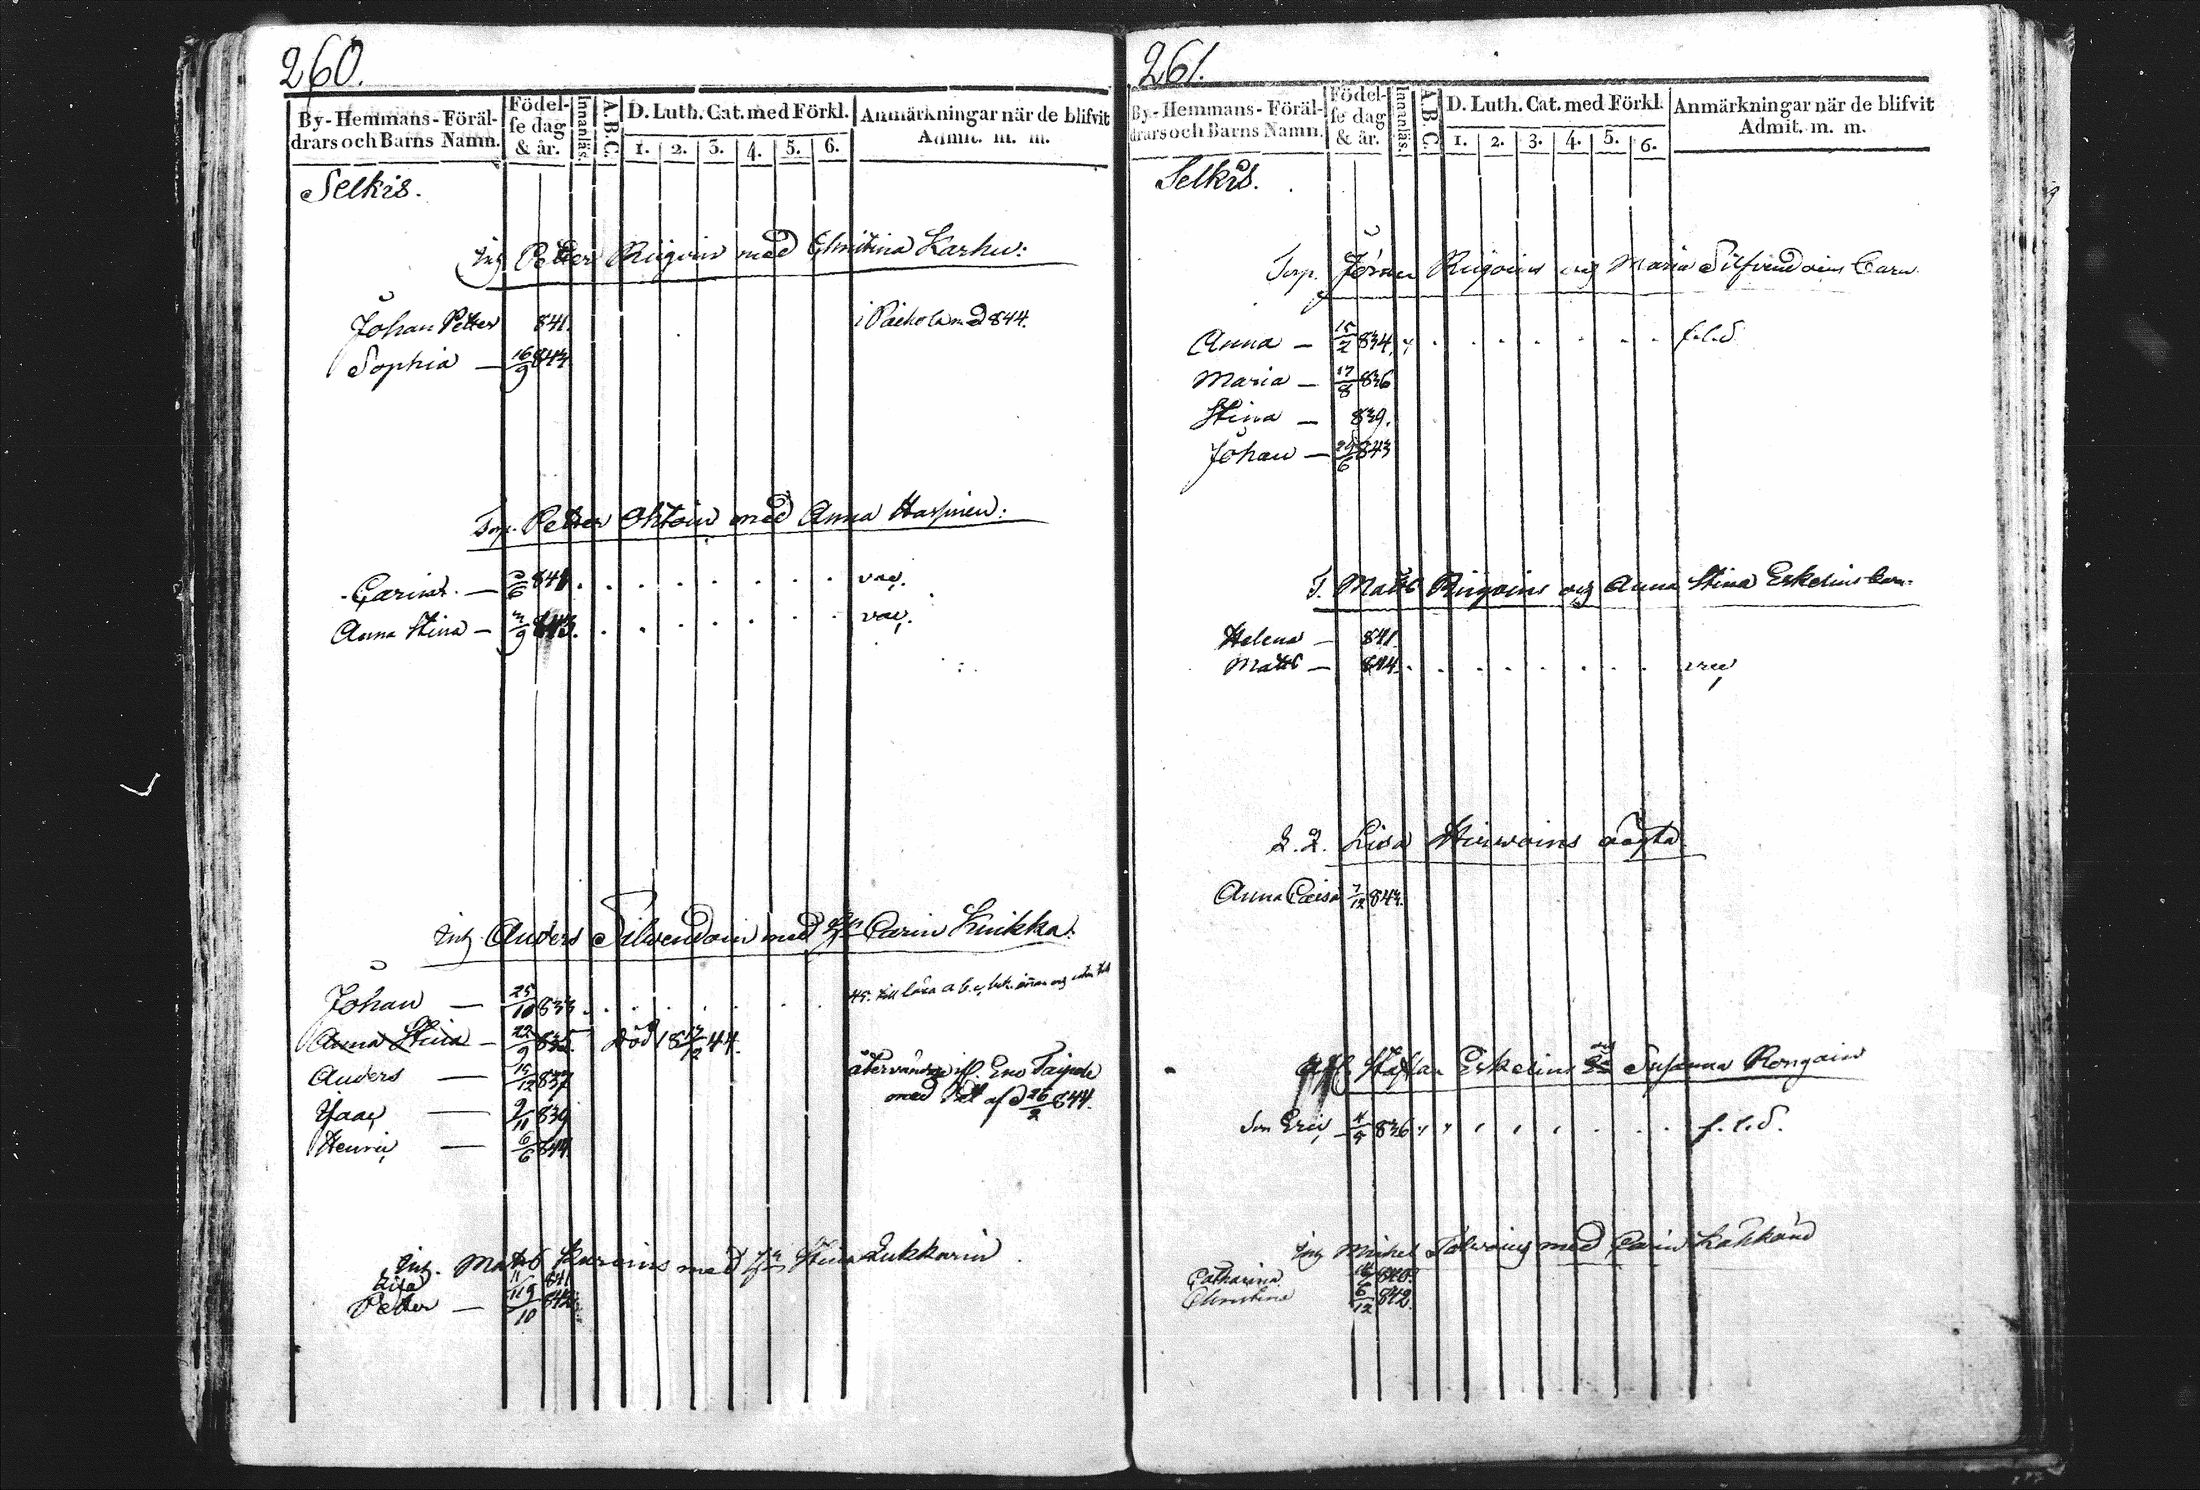 260.
By-Hemmans-Föräl-
drars och Barns Namn.
Födel-
se dag
& år.
Innanläs.
A.B.C.
D. Luth. Cat. med Förkl.
1. 2. 3. 4. 5. 6.
Anmärkningar när de blifvit
Admit. m. m.
Selkis.
Inh Petter Riigoin med Christina Karhu:
Johan Petter 841. 844.
Sophia — 16/9 843
Torp. Petter med Anna
Carin — 6 841 vac.
Anna Stina — 9 843. vac.
Inh. Anders Silvendoin med Carin Kuikka.
Johan — 25/10 833 45. till lära a.b.c.
Anna Stina — 22/9 835 död 18 17/12 44.
Anders — 15/12 837 Eno
Isaac — 9/11 839 med Att af d 26/2 844.
Henric — 6/6 844
Inh. Matts med Stina Lukkarin
Lisa 11/11 841
Petter — 9/10 842
261.
By-Hemmans-Föräl-
drars och Barns Namn.
Födel-
se dag
& år.
Innanläs.
A.B.C.
D. Luth. Cat. med Förkl.
1. 2. 3. 4. 5. 6.
Anmärkningar när de blifvit
Admit. m. m.
Selkis.
Torp. Jöran Riigoins och Maria Silfvendoins Barn.
Anna — 15/2 834 f.l.d
Maria — 17/8 836
Stina — 839.
Johan — 29/6 843
T. Matts Riigoins och Anna Stina Eskelins barn.
Helena — 841
Matts — 844. vac
Lisa Hirwoins oägta
Anna Caisa 7/12 843.
Staffan Eskelins och Susanna Rongain
Son Eric — 836 f.l.d.
Inh Mihel med Carin
Catharina 840.
Christina 6/12 842.